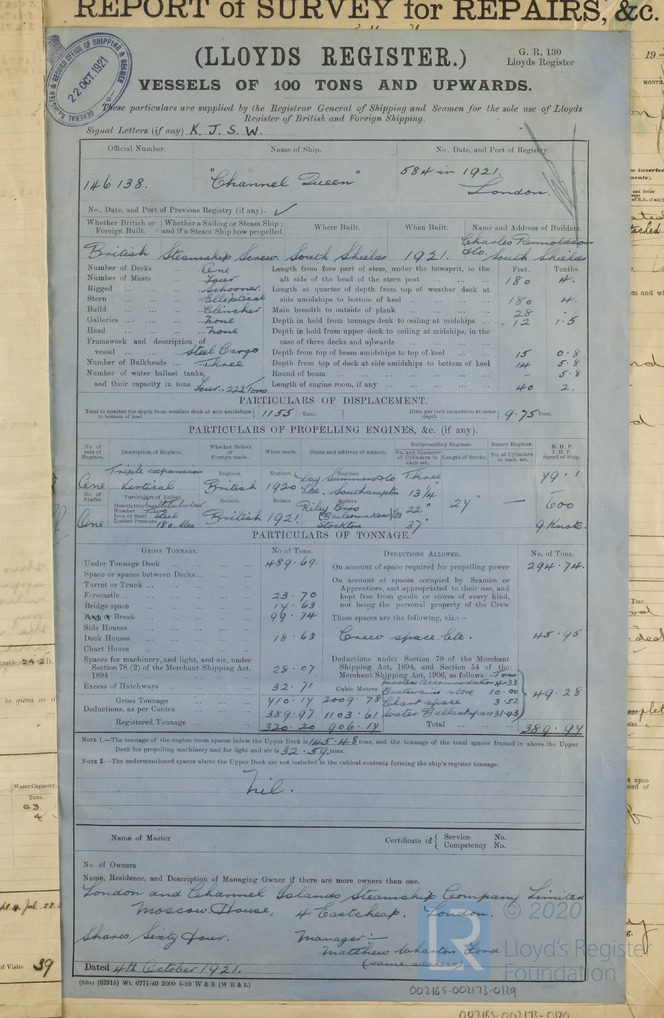 REPORT of SURVEY for REPAIRS, &c.
REGISTER & RECORD OFFICE OF SHIPPING & SEAMEN
22 OCT. 1921
GENERAL
(LLOYDS REGISTER.)
G. R. 130
Lloyds Register
VESSELS OF 100 TONS AND UPWARDS.
These particulars are supplied by the Registrar General of Shipping and Seamen for the sole use of Lloyds
Register of British and Foreign Shipping.
Signal Letters (if any) K. J. S. W.
Official Number. Name of Ship. No., Date, and Port of Registry.
146138. "Channel Queen" 584 in 1921.
London.
No., Date, and Port of Previous Registry (if any). ✓
Whether British or Foreign Built. Whether a Sailing or Steam Ship; and if a Steam Ship how propelled. Where Built. When Built. Name and Address of Builders.
Charles Rennoldson
British Steamship Screw South Shields 1921. & Co. South Shields
Number of Decks ... One Length from fore part of stem, under the bowsprit, to the Feet. Tenths
Number of Masts ... Four aft side of the head of the stern post 180 4.
Rigged ... Schooner Length at quarter of depth from top of weather deck at
Stern ... Elliptical side amidships to bottom of keel 180 4.
Build ... Clincher Main breadth to outside of plank 28 -
Galleries ... None Depth in hold from tonnage deck to ceiling at midships 12 1.5
Head ... None Depth in hold from upper deck to ceiling at midships, in the
Framework and description of case of three decks and upwards
vessel ... Steel Cargo Depth from top of beam amidships to top of keel 15 0.8
Number of Bulkheads ... Three Depth from top of deck at side amidships to bottom of keel 14 5.8
Number of water ballast tanks, Round of beam - 5.8
and their capacity in tons Four. 222 Tons Length of engine room, if any 40 2.
PARTICULARS OF DISPLACEMENT.
Total to quarter the depth from weather deck at side amidships to bottom of keel 1155 Tons. Ditto per inch immersion at same depth 9.75 Tons.
PARTICULARS OF PROPELLING ENGINES, &c. (if any).
No. of sets of Engines. Description of Engines. Whether British or Foreign made. When made. Name and address of makers. Reciprocating Engines. Rotary Engines. N. H. P. I. H. P. Speed of Ship.
No. and Diameter of Cylinders in each set. Length of Stroke. No. of Cylinders in each set.
Triple expansion Engines. Engines. Engines. Three 79.1
One Vertical British 1920 Day Summers & Co
Ltd., Southampton
No. of Shafts. Particulars of Boilers. Boilers. Boilers Boilers 13¼
Description Multitubular Riley Bros 22" 24" — 600
Number Two
Iron or Steel Steel (Boilermakers) Ltd
One Loaded Pressure 180 lbs British 1921. Stockton 37" 9 Knots.
PARTICULARS OF TONNAGE.
GROSS TONNAGE. No of Tons. DEDUCTIONS ALLOWED. No. of Tons.
Under Tonnage Deck 489.69. On account of space required for propelling power 294.74.
Space or spaces between Decks On account of spaces occupied by Seamen or
Turret or Trunk Apprentices, and appropriated to their use, and
Forecastle 23.70 kept free from goods or stores of every kind,
Bridge space 17.63 not being the personal property of the Crew
Break 99.74 These spaces are the following, viz.:—
Side Houses
Deck Houses 18.63 Crew space etc. 45.95
Chart House
Spaces for machinery, and light, and air, under Deductions under Section 79 of the Merchant
Section 78 (2) of the Merchant Shipping Act, Shipping Act, 1894, and Section 54 of the
1894 28.07 Merchant Shipping Act, 1906, as follows: Tons
Masters Accommodation 4.33
Excess of Hatchways 32.71 Cubic Metres Boatswains store 10.00 49.28
Gross Tonnage 710.17 2009.78 Chart space 3.52
Deductions, as per Contra 389.97 1103.61 Water Ballast space 31.43
Registered Tonnage 320.20 906.17 Total 389.97
NOTE 1.—The tonnage of the engine room spaces below the Upper Deck is 145.48 tons, and the tonnage of the total spaces framed in above the Upper
Deck for propelling machinery and for light and air is 32.59 tons.
NOTE 2.—The undermentioned spaces above the Upper Deck are not included in the cubical contents forming the ship's register tonnage.
Nil.
Name of Master Certificate of { Service No.
Competency No.
No. of Owners
Name, Residence, and Description of Managing Owner if there are more owners than one.
London and Channel Islands Steamship Company Limited
Moscow House, 4 Eastcheap. London.
Shares, Sixty four. Manager:—
Matthew Wharton Ford
(same address)
Dated 4th October 1921.
(83o) (62015) Wt. 6771/40 2000 5-20 W & S (W. B & L)
002165-002173-0129
002165-002173-0129
© 2020
LR
Lloyd's Register
Foundation
Water Capacity
Tons.
63.
of Visits 39